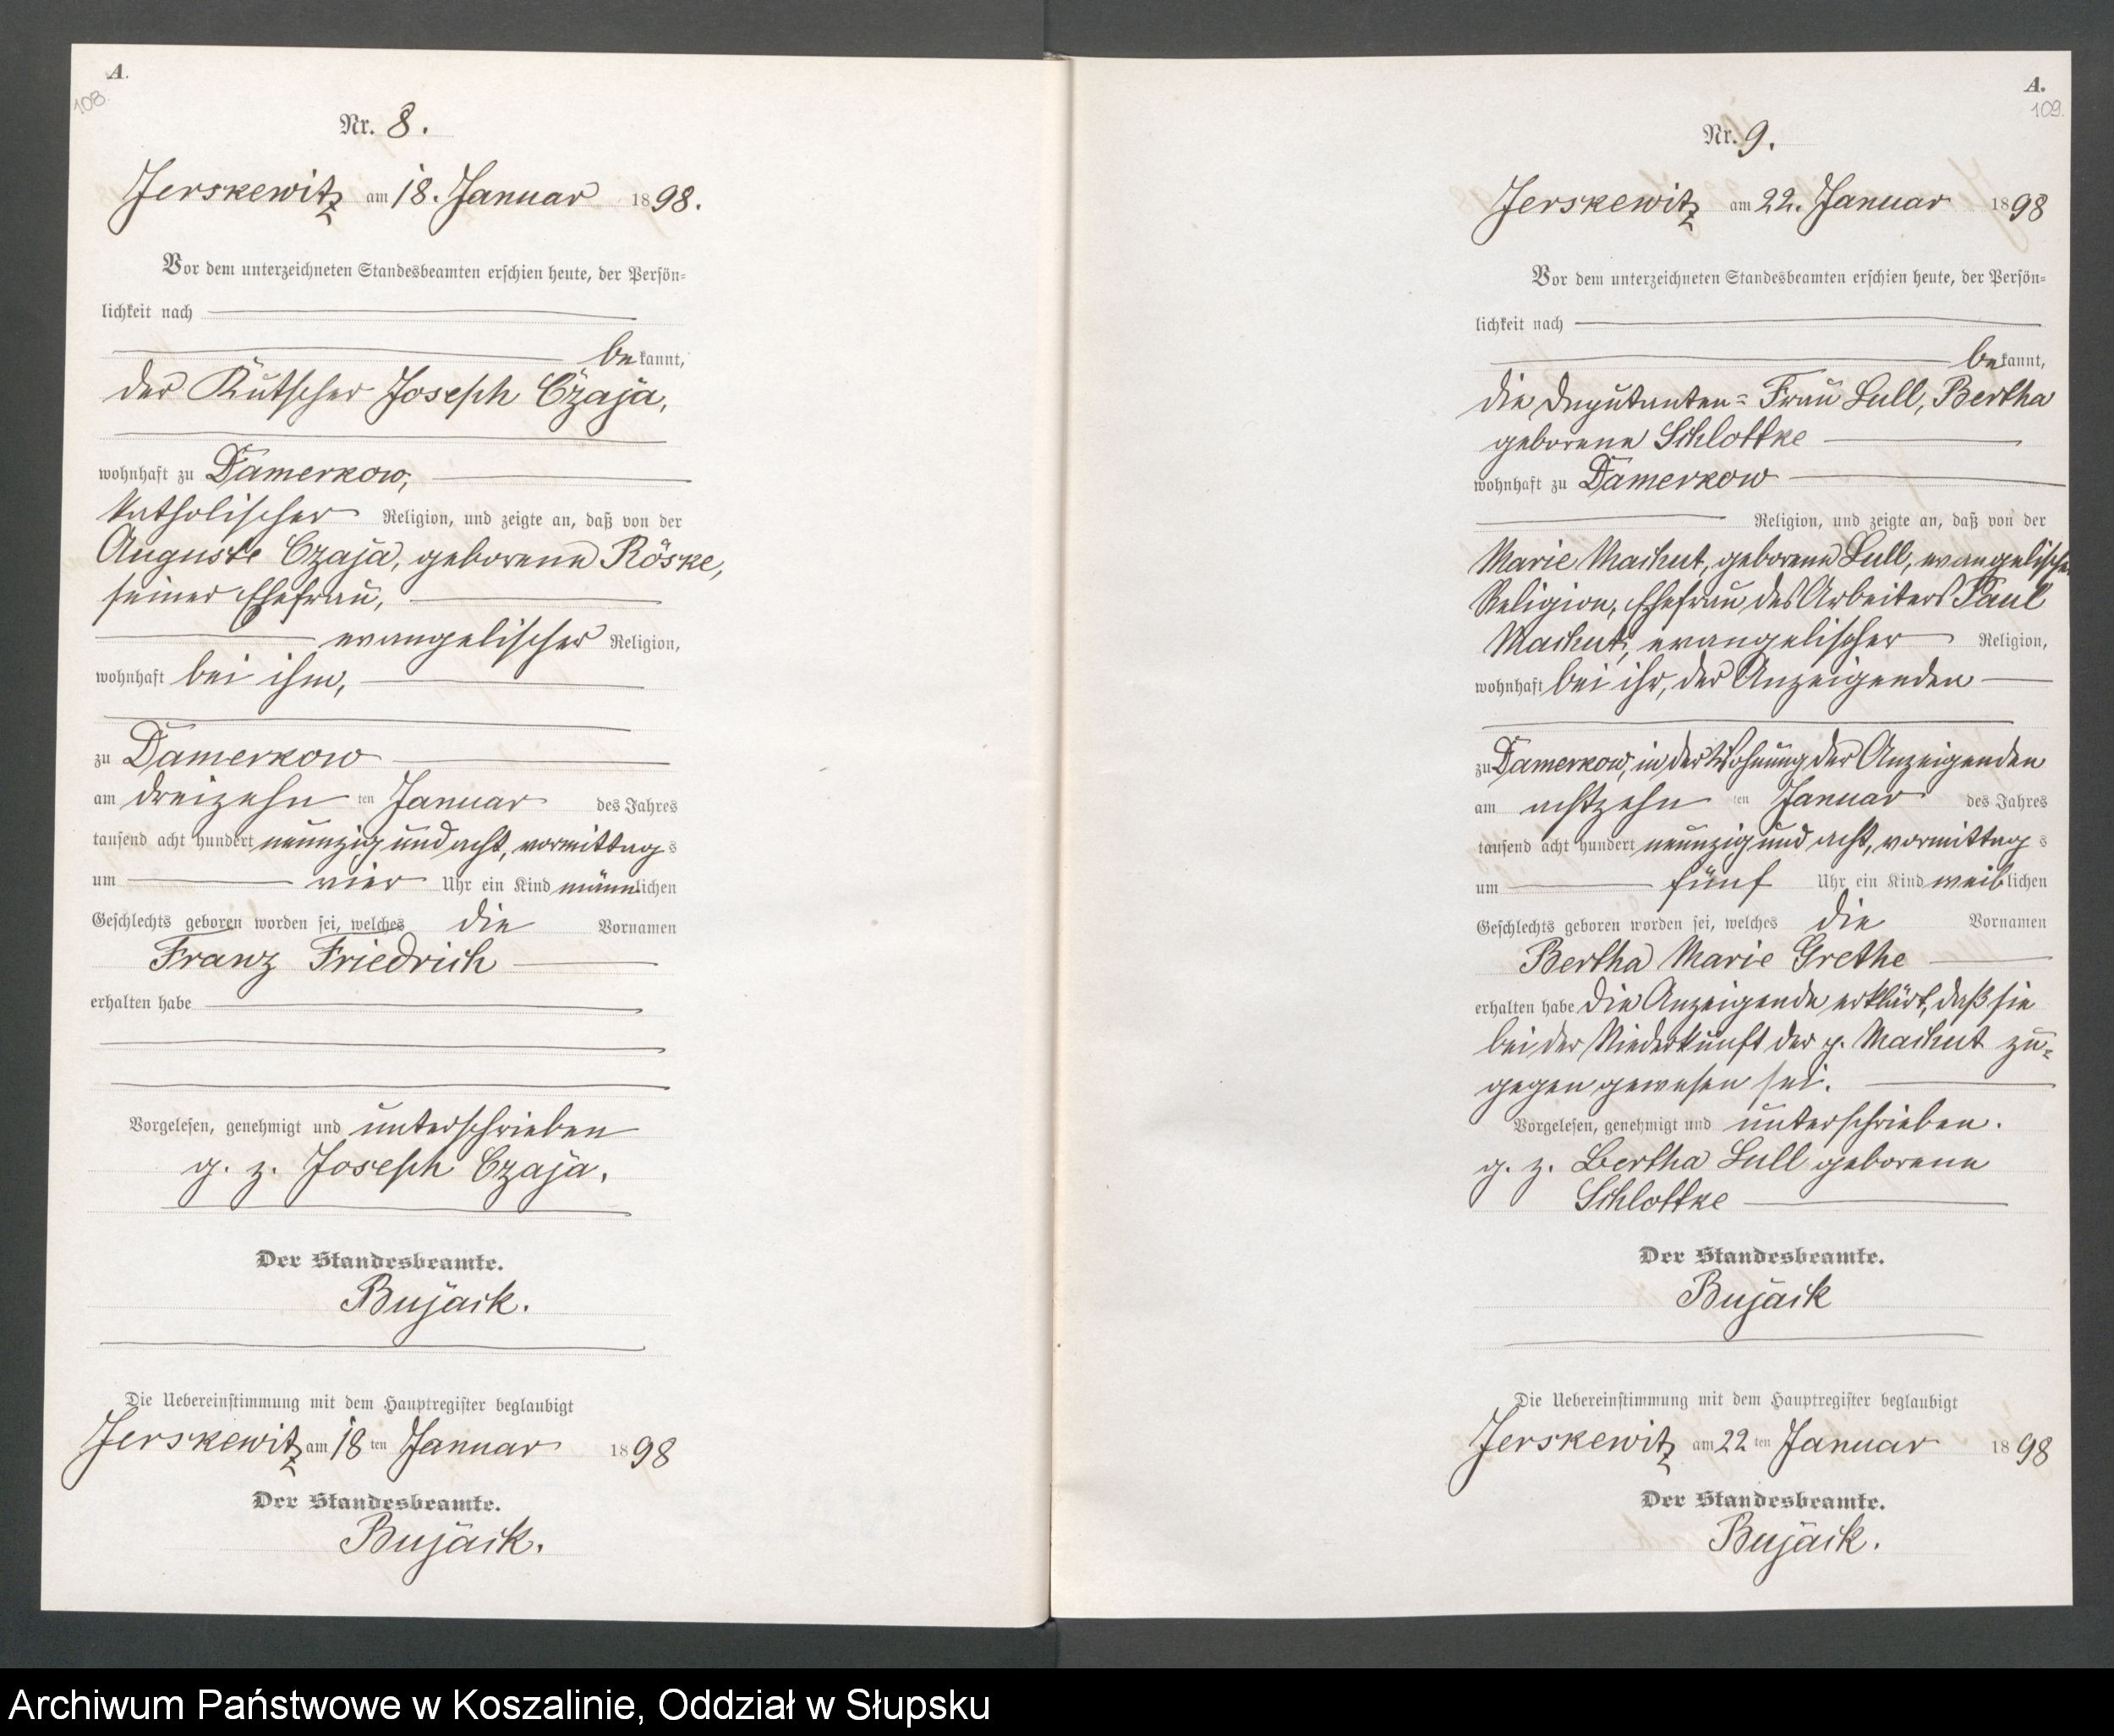 A.
108.
Nr. 8.
Jerskewitz am 18. Januar 1898.
Vor dem unterzeichneten Standesbeamten erschien heute, der Persön-
lichkeit nach
bekannt,
der Kutscher Joseph Czaja,
wohnhaft zu Damerkow,
katholischer Religion, und zeigte an, daß von der
Auguste Czaja, geborene Röske,
seiner Ehefrau,
evangelischer Religion,
wohnhaft bei ihm,
zu Damerkow
am dreizehn ten Januar des Jahres
tausend acht hundert neunzig und acht, vormittags
um vier Uhr ein Kind männlichen
Geschlechts geboren worden sei, welches die Vornamen
Franz Friedrich
erhalten habe
Vorgelesen, genehmigt und unterschrieben
g. z. Joseph Czaja.
Der Standesbeamte.
Bujack.
Die Uebereinstimmung mit dem Hauptregister beglaubigt
Jerskewitz am 18 ten Januar 1898
Der Standesbeamte.
Bujack.
A.
109.
Nr. 9.
Jerskewitz am 22. Januar 1898
Vor dem unterzeichneten Standesbeamten erschien heute, der Persön-
lichkeit nach
bekannt,
die Deputanten-Frau Lull, Bertha
geborene Schlottke
wohnhaft zu Damerkow
Religion, und zeigte an, daß von der
Marie Machut, geborene Lull, evangelischer
Religion, Ehefrau des Arbeiters Paul
Machut, evangelischer Religion,
wohnhaft bei ihr, der Anzeigenden
zu Damerkow, in der Wohnung der Anzeigenden
am achtzehn ten Januar des Jahres
tausend acht hundert neunzig und acht, vormittags
um fünf Uhr ein Kind weiblichen
Geschlechts geboren worden sei, welches die Vornamen
Bertha Marie Grethe
erhalten habe die Anzeigende erklärt, daß sie
bei der Niederkunft der p. Machut zu-
gegen gewesen sei.
Vorgelesen, genehmigt und unterschrieben.
g. z. Bertha Lull geborene
Schlottke
Der Standesbeamte.
Bujack
Die Uebereinstimmung mit dem Hauptregister beglaubigt
Jerskewitz am 22 ten Januar 1898
Der Standesbeamte.
Bujack.
Archiwum Państwowe w Koszalinie, Oddział w Słupsku